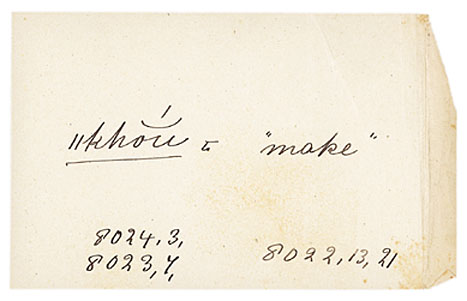 ‖khóu = "make"
8024, 3,
8023, 7,
8022, 13, 21